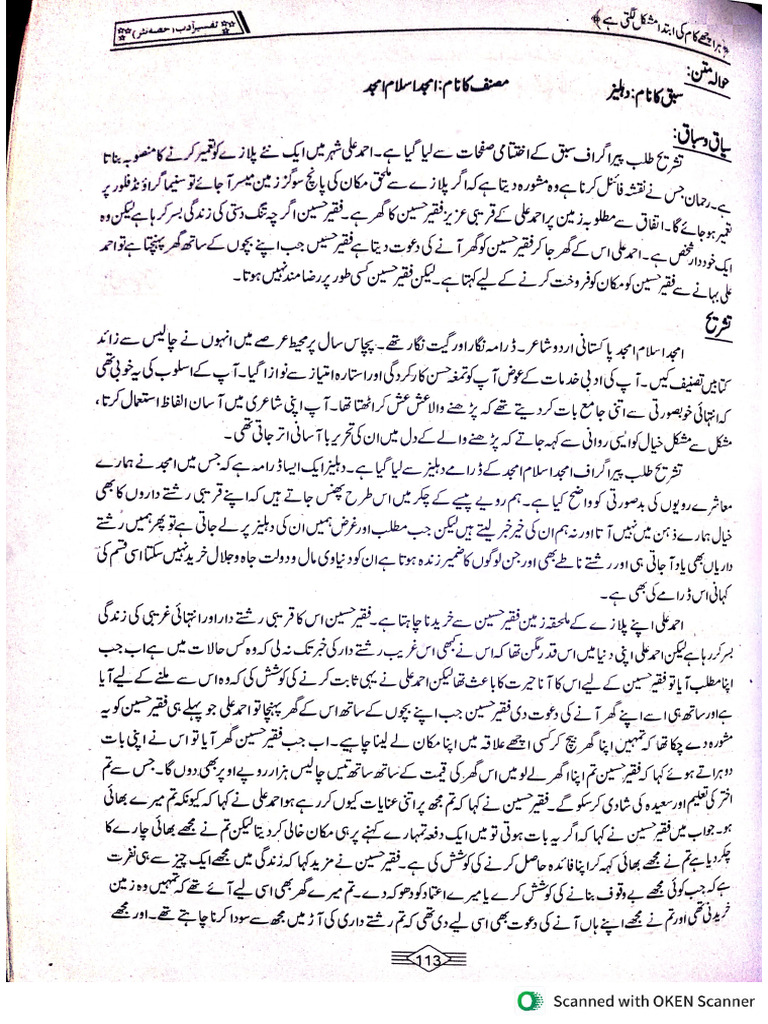 ﴿ہر اچھے کام کی ابتدا مشکل لگتی ہے﴾
تفسیرِ ادب (حصہ نثر)
حوالہ متن:
سبق کا نام: دہلیز مصنف کا نام: امجد اسلام امجد
سیاق و سباق:
تشریح طلب پیراگراف سبق کے اختتامی صفحات سے لیا گیا ہے۔ احمد علی شہر میں ایک نئے پلازے کو تعمیر کرنے کا منصوبہ بناتا
ہے۔ رحمان جس نے نقشہ فائنل کرنا ہے وہ مشورہ دیتا ہے کہ اگر پلازے سے ملحق مکان کی پانچ سو گز زمین میسر آ جائے تو سنیما گراؤنڈ فلور پر
تعمیر ہو جائے گا۔ اتفاق سے مطلوبہ زمین پر احمد علی کے قریبی عزیز فقیر حسین کا گھر ہے۔ فقیر حسین اگرچہ تنگ دستی کی زندگی بسر کر رہا ہے لیکن وہ
ایک خوددار شخص ہے۔ احمد علی اس کے گھر جا کر فقیر حسین کو گھر آنے کی دعوت دیتا ہے فقیر حسین جب اپنے بچوں کے ساتھ گھر پہنچتا ہے تو احمد
علی بہانے سے فقیر حسین کو مکان کو فروخت کرنے کے لیے کہتا ہے۔ لیکن فقیر حسین کسی طور پر رضا مند نہیں ہوتا۔
تشریح
امجد اسلام امجد پاکستانی اردو شاعر۔ ڈرامہ نگار اور گیت نگار تھے۔ پچاس سال پر محیط عرصے میں انہوں نے چالیس سے زائد
کتابیں تصنیف کیں۔ آپ کی ادبی خدمات کے عوض آپ کو تمغہ حسن کارکردگی اور ستارہ امتیاز سے نوازا گیا۔ آپ کے اسلوب کی یہ خوبی تھی
کہ انتہائی خوبصورتی سے اتنی جامع بات کر دیتے تھے کہ پڑھنے والا عش عش کر اٹھتا تھا۔ آپ اپنی شاعری میں آسان الفاظ استعمال کرتا،
مشکل سے مشکل خیال کو ایسی روانی سے کہہ جاتے کہ پڑھنے والے کے دل میں ان کی تحریر با آسانی اتر جاتی تھی۔
تشریح طلب پیراگراف امجد اسلام امجد کے ڈرامے دہلیز سے لیا گیا ہے۔ دہلیز ایک ایسا ڈرامہ ہے کہ جس میں امجد نے ہمارے
معاشرے رویوں کی بدصورتی کو واضح کیا ہے۔ ہم روپے پیسے کے چکر میں اس طرح پھنس جاتے ہیں کہ اپنے قریبی رشتے داروں کا بھی
خیال ہمارے ذہن میں نہیں آتا اور نہ ہم ان کی خیر خبر لیتے ہیں لیکن جب مطلب اور غرض ہمیں ان کی دہلیز پر لے جاتی ہے تو پھر ہمیں رشتے
داریاں بھی یاد آ جاتی ہی اور رشتے ناطے بھی اور جن لوگوں کا ضمیر زندہ ہوتا ہے ان کو دنیاوی مال و دولت جاہ و جلال خرید نہیں سکتا اسی قسم کی
کہانی اس ڈرامے کی بھی ہے۔
احمد علی اپنے پلازے کے ملحقہ زمین فقیر حسین سے خریدنا چاہتا ہے۔ فقیر حسین اس کا قریبی رشتے دار اور انتہائی غریبی کی زندگی
بسر کر رہا ہے لیکن احمد علی اپنی دنیا میں اس قدر مگن تھا کہ اس نے کبھی اس غریب رشتے دار کی خبر تک نہ لی کہ وہ کس حالات میں ہے اب جب
اپنا مطلب آیا تو فقیر حسین کے لیے اس کا آنا حیرت کا باعث تھا لیکن احمد علی نے یہی ثابت کرنے کی کوشش کی کہ وہ اس سے ملنے کے لیے آیا
ہے اور ساتھ ہی اسے اپنے گھر آنے کی دعوت دی فقیر حسین جب اپنے بچوں کے ساتھ اس کے گھر پہنچا تو احمد علی جو پہلے ہی فقیر حسین کو یہ
مشورہ دے چکا تھا کہ تمہیں اپنا گھر بیچ کر کسی اچھے علاقہ میں اپنا مکان لے لینا چاہیے۔ اب جب فقیر حسین گھر آیا تو اس نے اپنی بات
دوہراتے ہوئے کہا کہ فقیر حسین تم اپنا گھر لے لو میں اس گھر کی قیمت کے ساتھ ساتھ تیس چالیس ہزار روپے اوپر بھی دوں گا۔ جس سے تم
اختر کی تعلیم اور سعیدہ کی شادی کر سکو گے۔ فقیر حسین نے کہا کہ تم مجھ پر اتنی عنایات کیوں کر رہے ہو احمد علی نے کہا کہ کیونکہ تم میرے بھائی
ہو۔ جواب میں فقیر حسین نے کہا کہ اگر یہ بات ہوتی تو میں ایک دفعہ تمہارے کہنے پر ہی مکان خالی کر دیتا لیکن تم نے مجھے بھائی چارے کا
چکر دیا ہے تم نے مجھے بھائی کہہ کر اپنا فائدہ حاصل کرنے کی کوشش کی ہے۔ فقیر حسین نے مزید کہا کہ زندگی میں مجھے ایک چیز سے ہی نفرت
ہے کہ جب کوئی مجھے بے وقوف بنانے کی کوشش کرے یا میرے اعتماد کو دھوکہ دے۔ تم میرے گھر بھی اسی لیے آئے تھے کہ تمہیں وہ زمین
خریدنی تھی اور تم نے مجھے اپنے ہاں آنے کی دعوت بھی اسی لیے دی تھی کہ تم رشتے داری کی آڑ میں مجھ سے سودا کرنا چاہتے تھے۔ اور مجھے
113
Scanned with OKEN Scanner